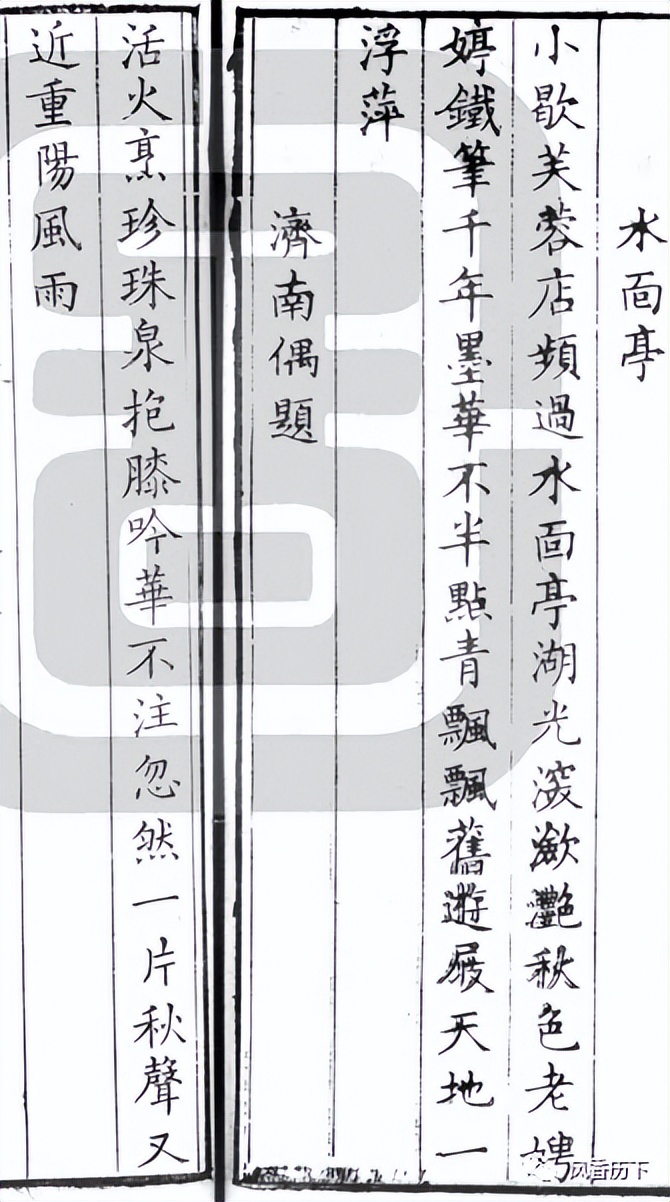 水靣亭
小歇芙蓉店頻過水靣亭湖光深瀲灩秋色老娉
婷鐵筆千年墨華不半點青飄飄舊遊屐天地一
浮萍
濟南偶題
活火烹珍珠泉抱膝吟華不注忽然一片秋聲又
近重陽風雨
风香历下